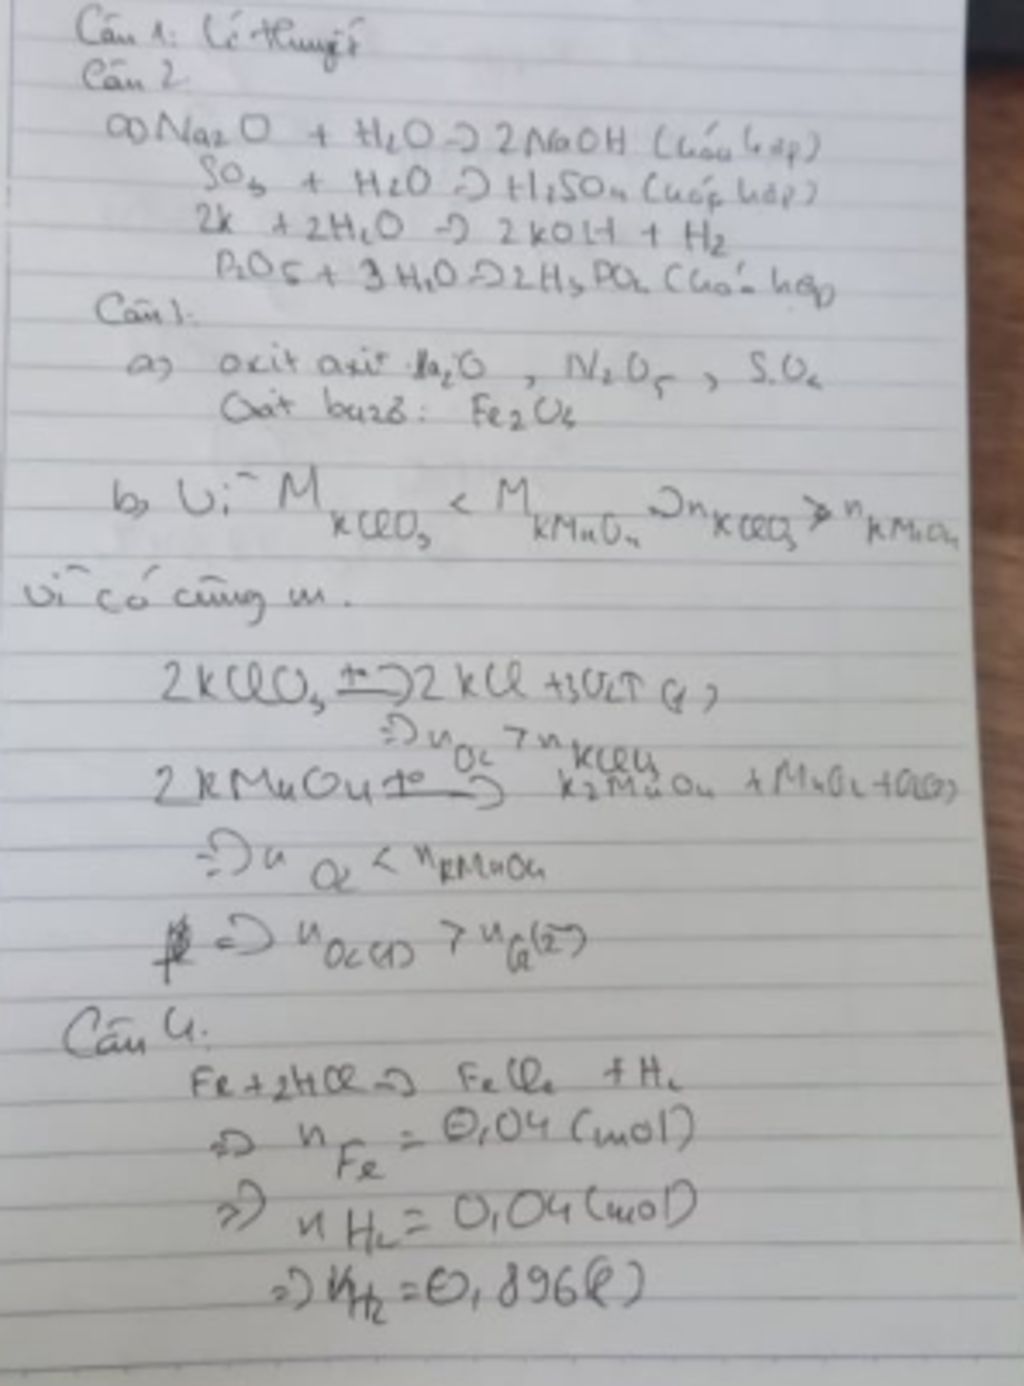 Câu 1: Lí thuyết
Câu 2
Na2O + H2O => 2NaOH (hóa hợp)
SO3 + H2O => H2SO4 (hóa hợp)
2K + 2H2O => 2KOH + H2
P2O5 + 3H2O => 2H3PO4 (hóa hợp
Câu 3:
a, oxit axit: , N2O5, SO2
Oxit bazơ: Fe2O3
b, Vì MKClO3 < MKMnO4 => nKClO3 > nKMnO4
vì có cùng m.
2KClO3 t°=> 2KCl + 3O2↑ (1)
=> nO2 > nKClO3
2KMnO4 t°=> K2MnO4 + MnO2 + O2(2)
=> nO2 < nKMnO4
=> nO2(1) > nO2(2)
Câu 4:
Fe + 2HCl => FeCl2 + H2
=> nFe = 0,04 (mol)
=> nH2 = 0,04 (mol)
=> VH2 = 0,896(l)